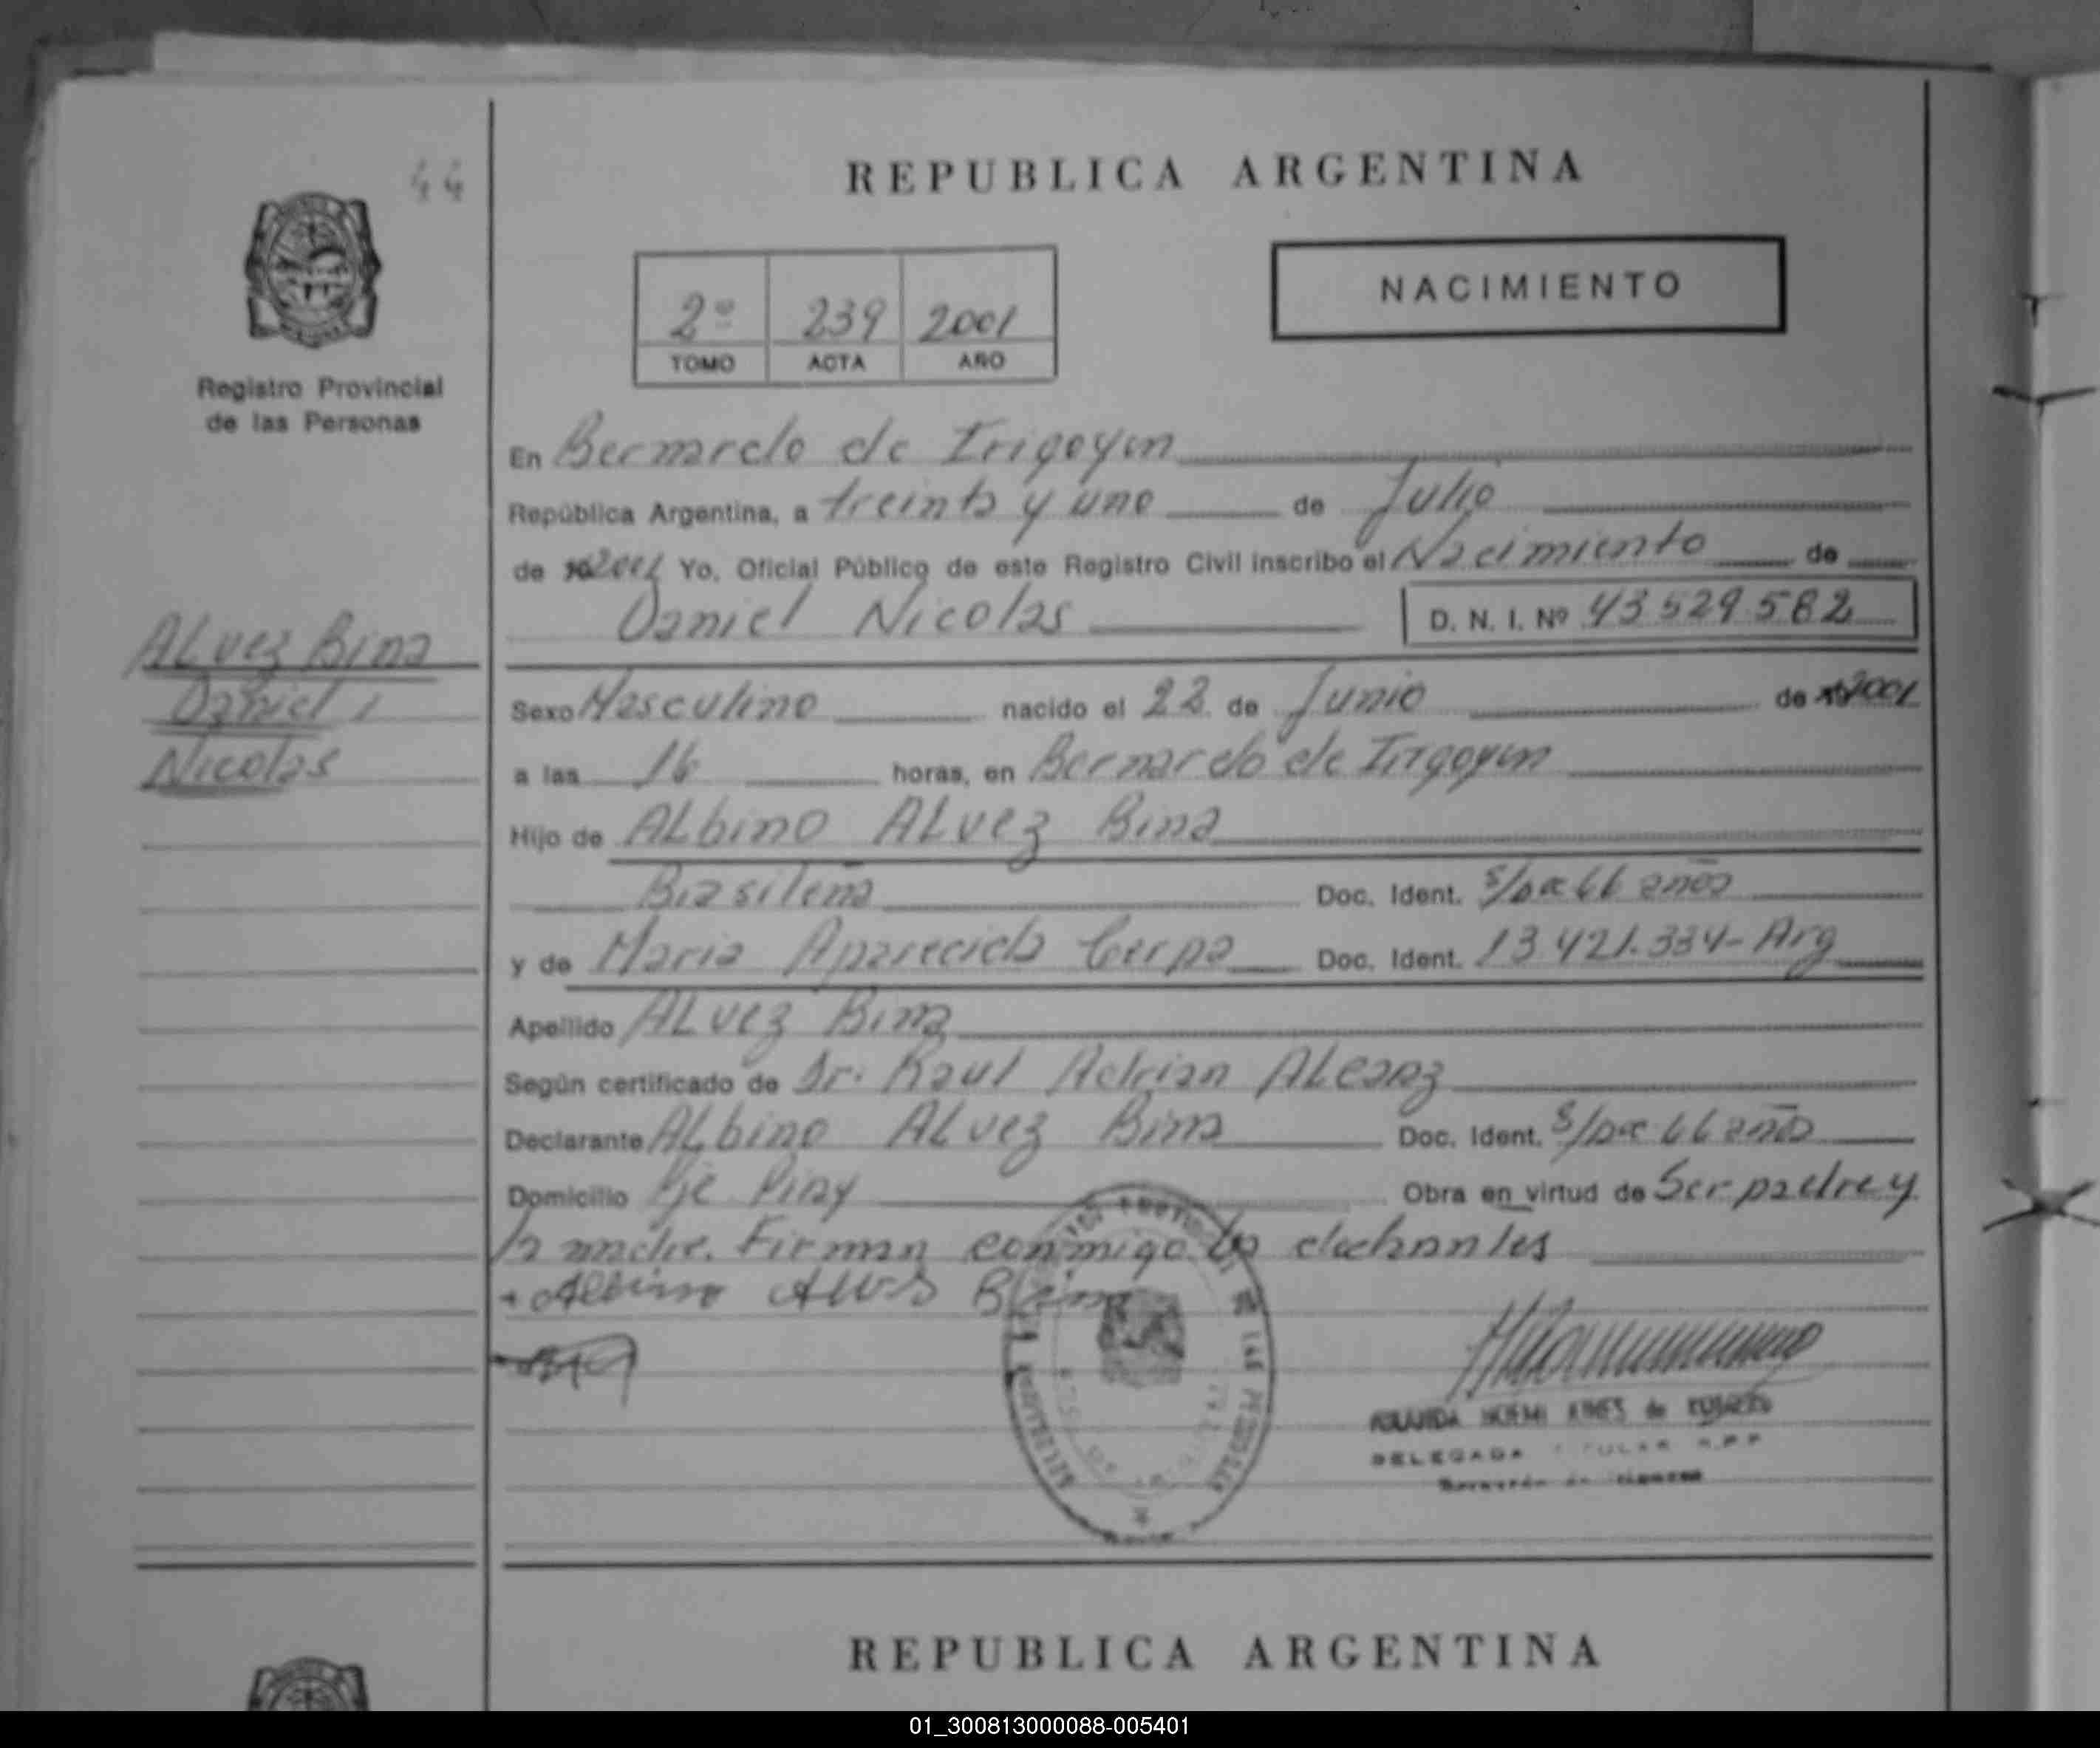 44
REPUBLICA ARGENTINA
NACIMIENTO
2º 239 2001
TOMO ACTA AÑO
Registro Provincial
de las Personas
En Bernardo de Irigoyen
República Argentina, a treinta y uno de Julio
de 2001 Yo, Oficial Público de este Registro Civil inscribo el Nacimiento de
Daniel Nicolas D. N. I. Nº 43529582
Alvez Bina
Daniel
Nicolas
Sexo Masculino nacido el 22 de Junio de 2001
a las 16 horas, en Bernardo de Irigoyen
Hijo de Albino Alvez Bina
Brasileña Doc. Ident. S/Doc 66 años
y de Maria Aparecida Cerpa Doc. Ident. 13.421.334- Arg
Apellido Alvez Bina
Según certificado de Dr. Raul Adrian Alcaraz
Declarante Albino Alvez Bina Doc. Ident. S/Doc 66 años
Domicilio Pje Piray Obra en virtud de Ser padre y
la madre. Firman conmigo
DELEGADA TITULAR R.P.P
Bernardo de Irigoyen
REPUBLICA ARGENTINA
01_300813000088-005401